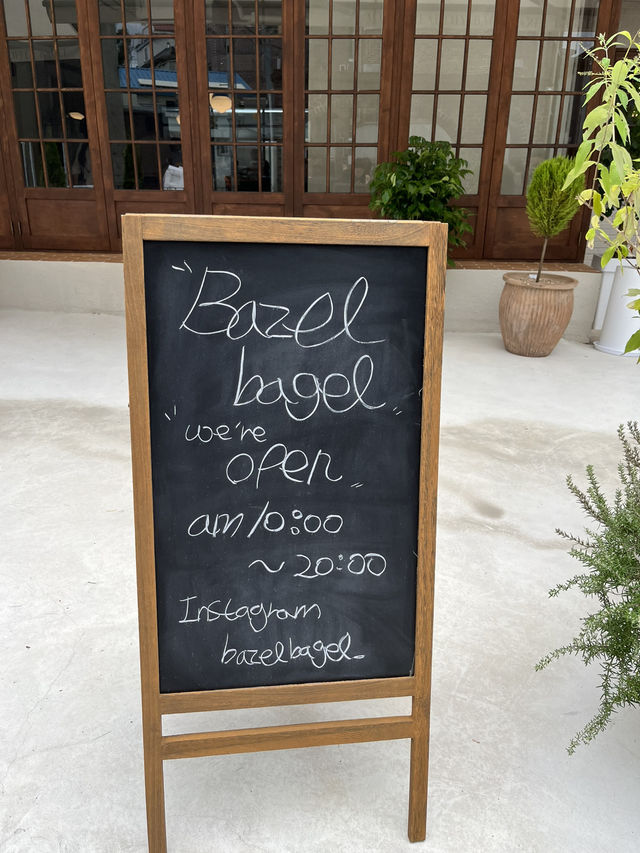 "Bazel
bagel"
we're
open"
am 10:00
~ 20:00
Instagram
bazelbagel_